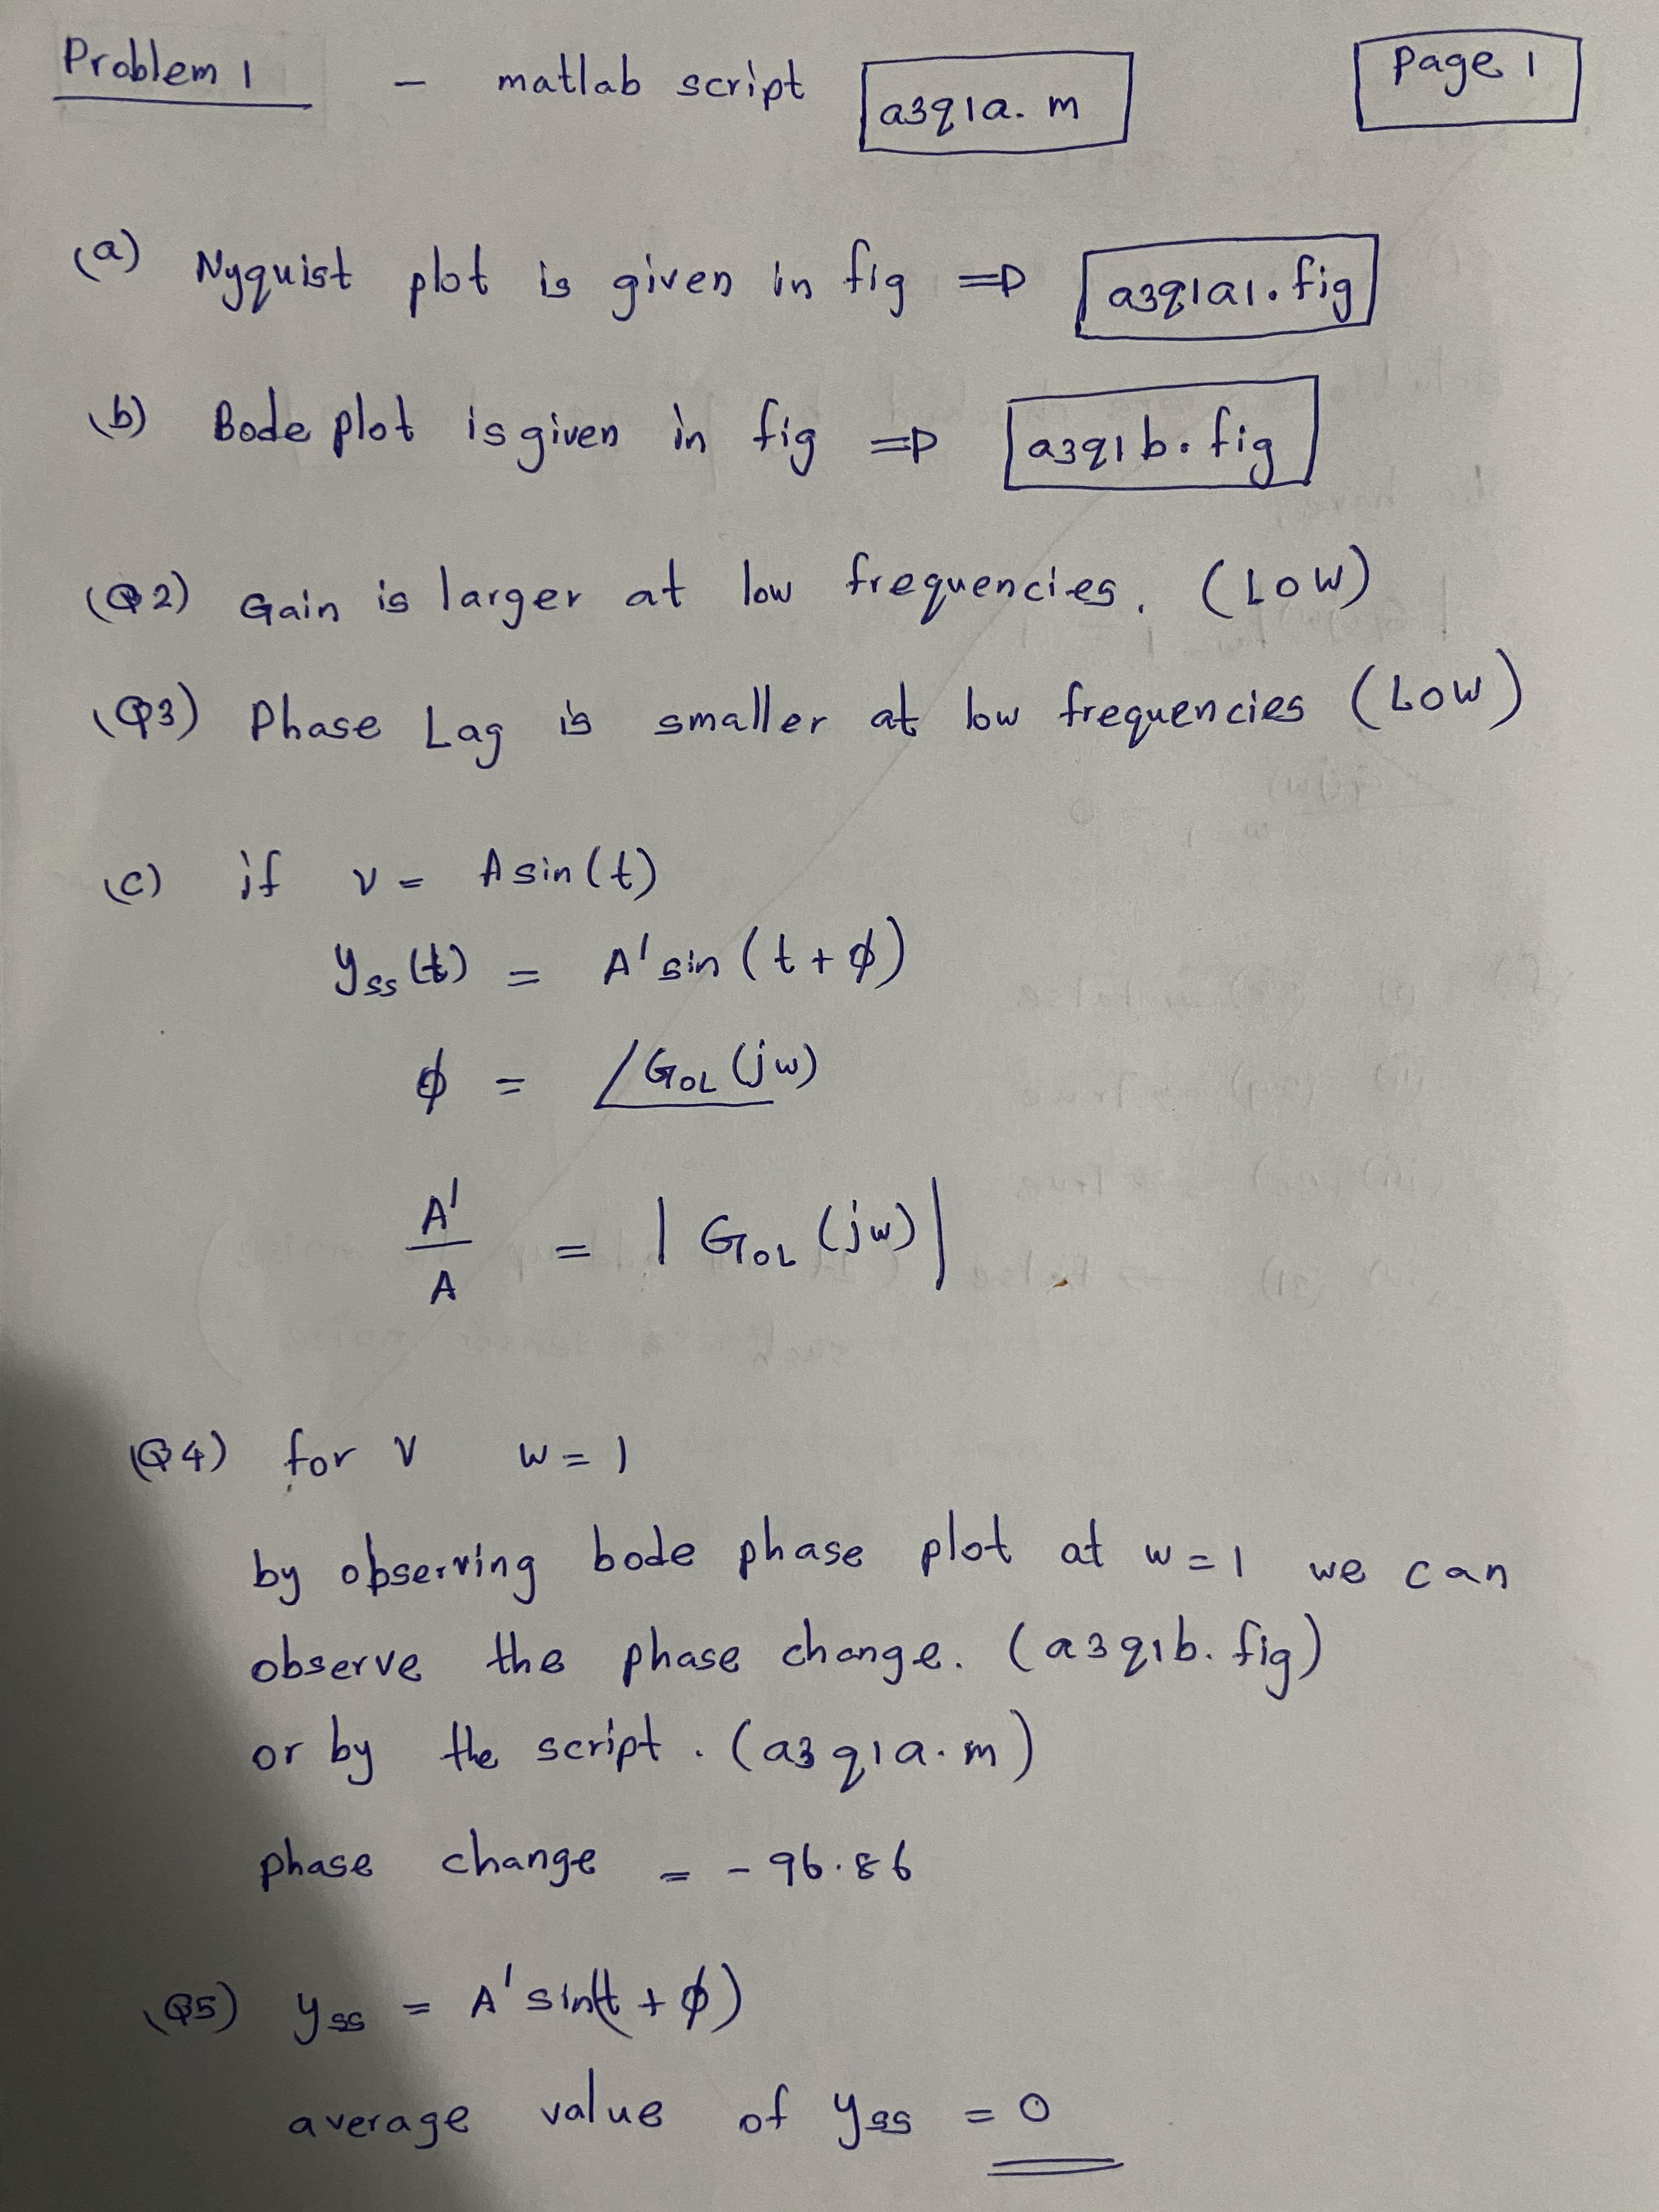 Problem 1 - matlab script a3q1a.m page 1
(a) Nyquist plot is given in fig ⇒ a3q1a1.fig
(b) Bode plot is given in fig ⇒ a3q1b.fig
(Q2) Gain is larger at low frequencies. (LOW)
(Q3) Phase Lag is smaller at low frequencies (LOW)
(c) if v = A sin(t)
yss(t) = A' sin (t + ϕ)
ϕ = ∠GOL (jw)
A'/A = | GOL (jw) |
(Q4) for v w = 1
by observing bode phase plot at w = 1 we can
observe the phase change. (a3q1b.fig)
or by the script. (a3q1a.m)
phase change = - 96.86
(Q5) yss = A' sin(t + ϕ)
average value of yss = 0